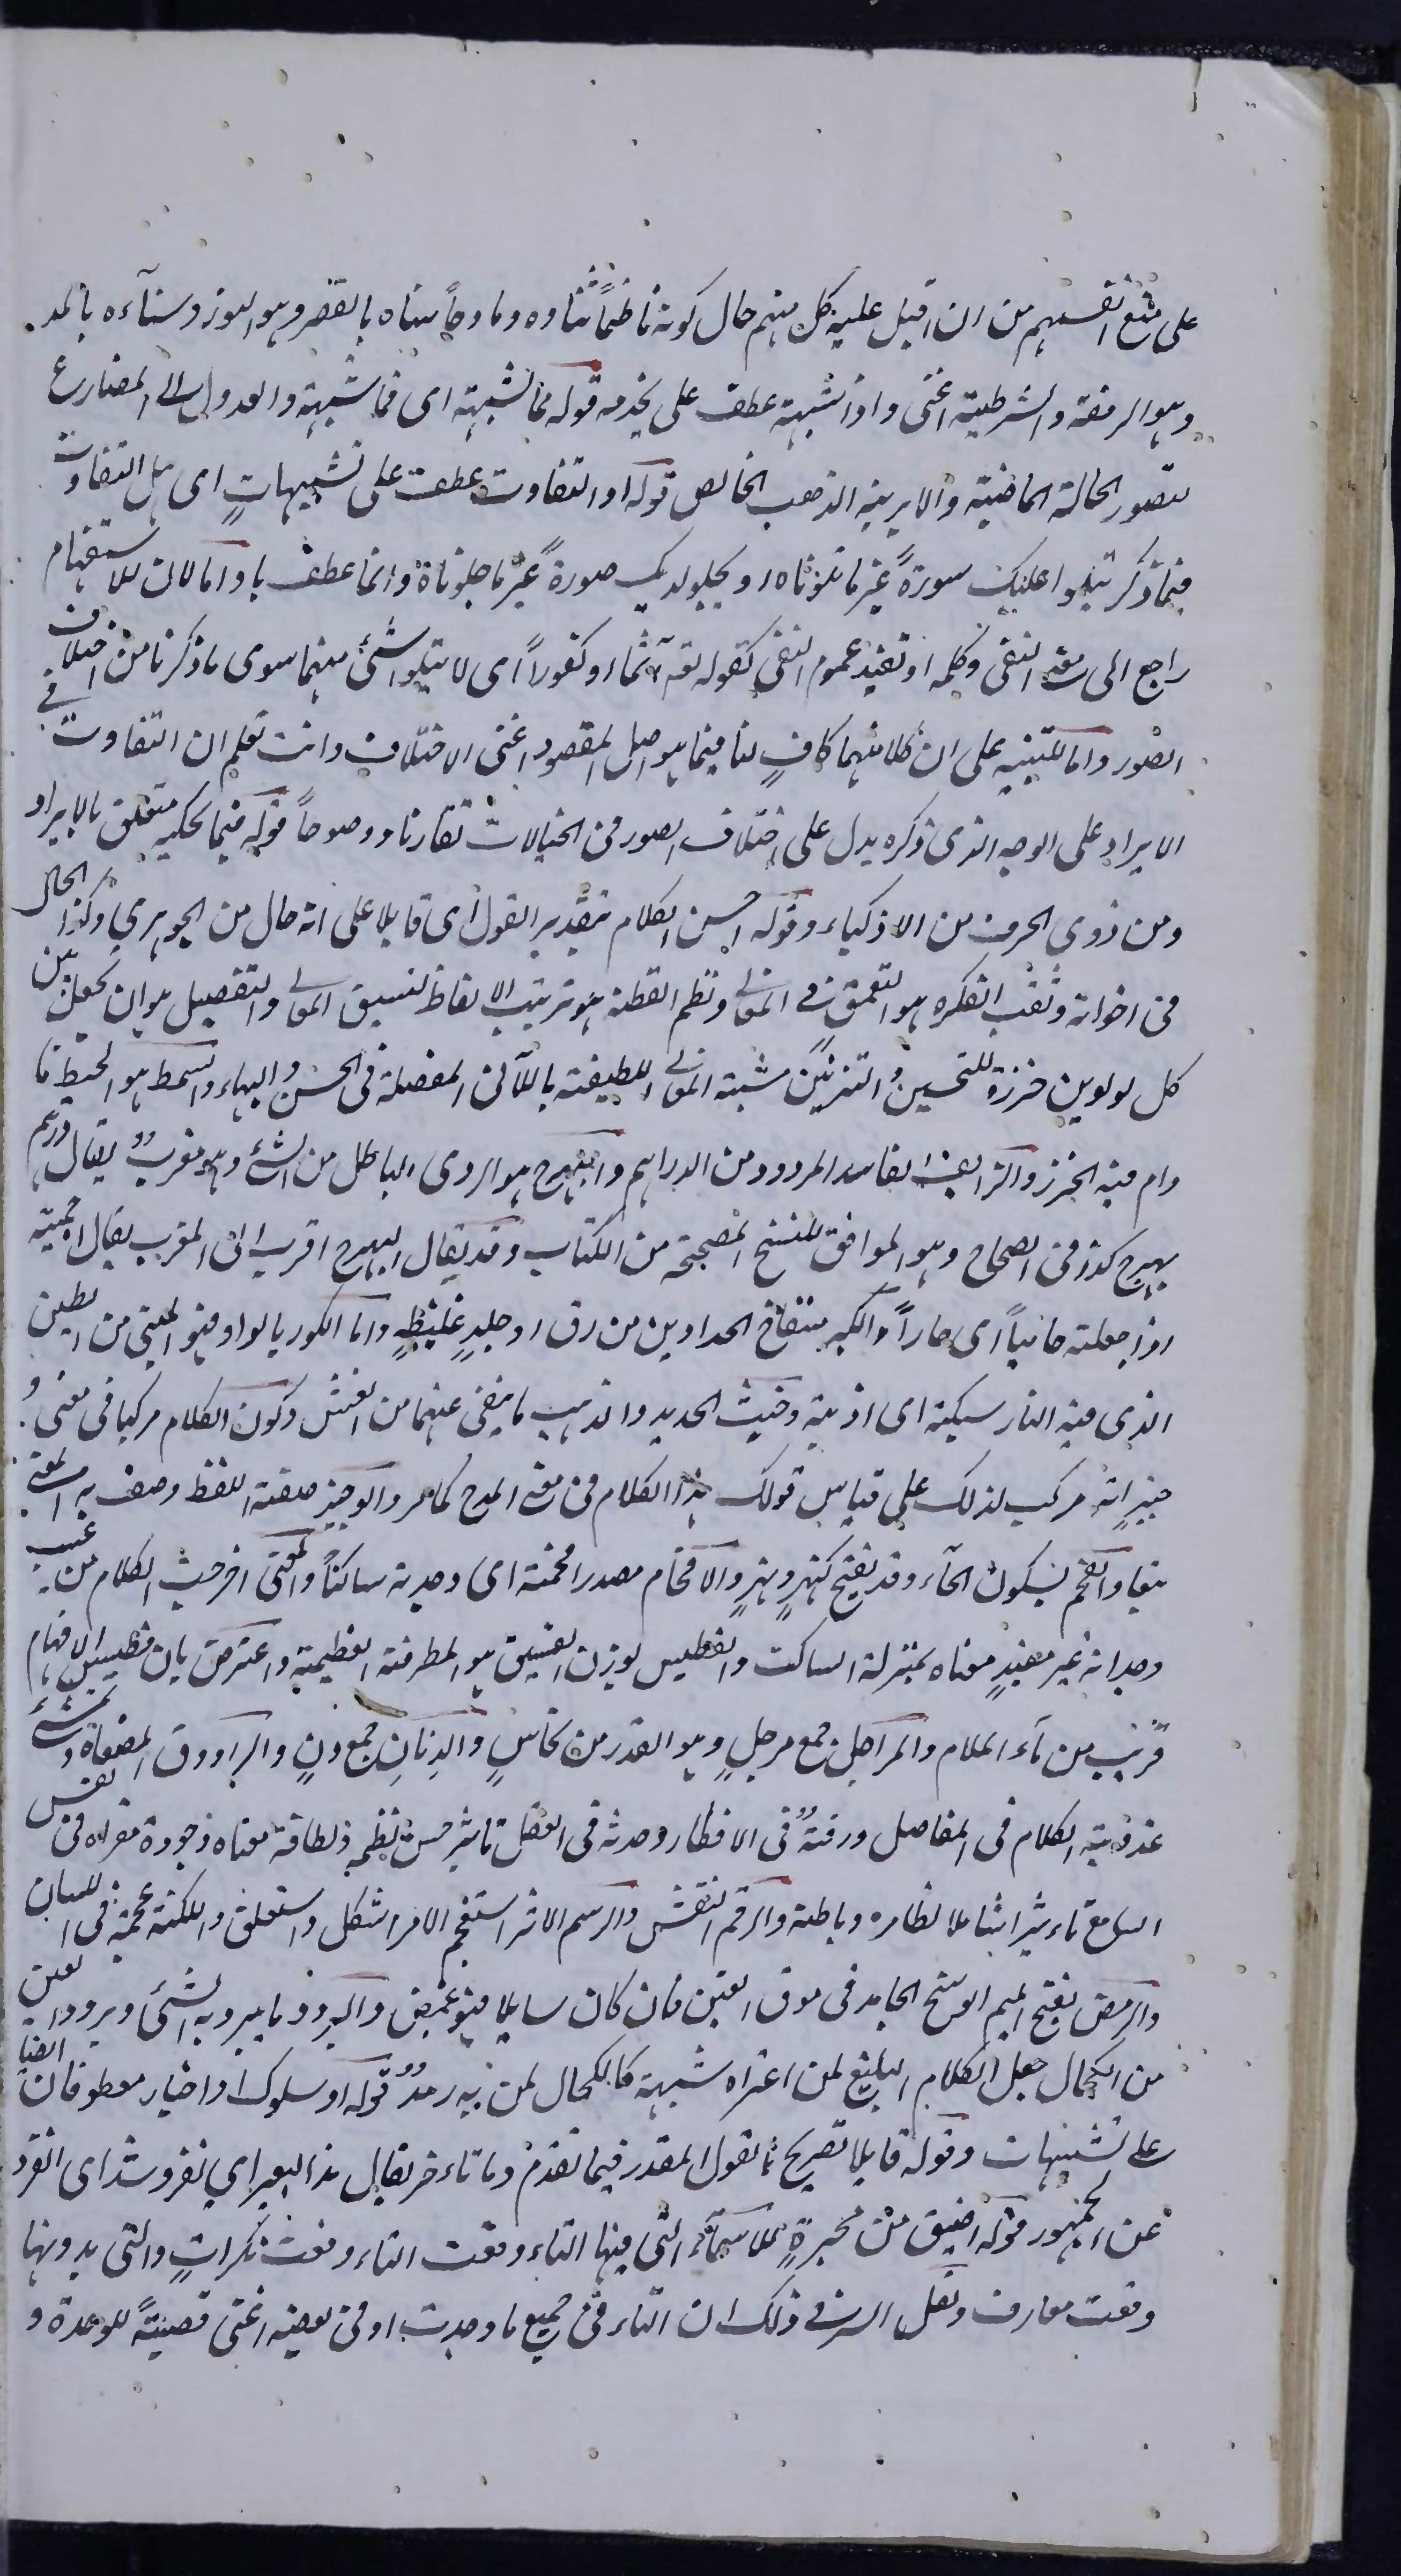 على منع انفسهم من ان اقبل عليه كل منهم حال كونه ناظماً ثناوه ومادحاً سناه بالقصر وهو النور وسناءه بالمد
وهو الرفعة والشرطية اعنى واذا شبهته عطف على يخدمه قوله فما شبهته اى فما شبهته والعدول الى المضارع
لتصور الحالة الماضية والابريز الذهب الخالص قوله او التفاوت عطف على تشبيهات اى هل التفاوت
فيما ذكر تتلوا عليك سورةً غير ما تلوناه او يجلو لديك صورةً غير ما جلوناه وانما عطف باو اما لان للاستفهام
راجع الى معنى النفى وكلمة او تفيد عموم النفى كقوله تعه آثما او كفوراً اى لا تتلوا شئ منهما سوى ما ذكرنا من اختلاف
الصور واما للتنبيه على ان كلا منهما كافٍ لنا فيما هو اصل المقصود اعنى الاختلاف وانت تعلم ان التفاوت فى
الايراد على الوجه الذى ذكره يدل على اختلاف الصور فى الخيالات تقارنا ووضوحاً قوله فيما يحكيه متعلق بالايراد
ومن ذوى الحرف من الاذكياء وقوله احسن الكلام بتقدير القول اى قايلا على انه حال من الجوهرى وكذا الحال
فى اخواته وثقب الفكره هو التعمق فى المعانى ونظم الفطنة هو ترتيب الالفاظ لتنسيق المعانى والتفصيل هو ان يجعل بين
كل لولوين خرزة للتحسين والتزيين مشبه المعانى اللطيفة باللآلى المفصلة فى الحسن والبهاء والسمط هو الخيط ما
دام فيه الخرز والزايف الفاسد المردود من الدراهم والبهرج هو الردى الباطل من الشئ وهو معربٌ يقال درهم
بهرج كذا فى الصحاح وهو الموافق للنسخ المصححة من الكتاب وقد يقال البهرج اقرب الى المعرب يقال احميته
اذا جعلته حامياً اى حاراً والكير منفاخ الحدادين من زق او جلدٍ غليظٍ واما الكور بالواو فهو المبنى من الطين
الذى فيه النار سبكته اى اذبته وخبث الحديد والذهب ما ينفى عنهما من الغش وكون الكلام مركبا فى معنى و
جيزٍ انه مركب لذلك على قياس قولك هذا الكلام فى معنى المدح كما مر والوجيز صفة اللفظ وصف به المعنى
تبعا والفحم بسكون الحاء وقد يفتح كنهرٍ ونهرٍ والافحام مصدر افحمته اى وجدته ساكتاً والمعنى اخرجت الكلام من عيب
وجدانه غير مفيدٍ معناه بمنزلة الساكت والفطيس بوزن الفسيق هو المطرقة العظيمة واعترض بان فطيس الافهام
قريب من ماء الملام والمراجل جمع مرجلٍ وهو القدر من نحاسٍ والدنان جمع دنٍ والراووق المصفاة وتمشى
عذوبة الكلام فى المفاصل ورقتهُ فى الافكار وحدثه فى العقل تاثير حسن نظمه ولطافة معناه وجودة مغزاه فى نفس
السامع تاءثيرا شاملا لظاهره وباطنه والرقم النقش والرسم الاثر استعجم الامر اشكل واستغلق واللكنة عجمة فى اللسان
والرمص بفتح الميم الوسخ الجامد فى موق العين فان كان سايلا فهو غمص والبرود ما يبرد به الشئ وبرود العين
من الكحال جعل الكلام البليغ لمن اعتراه شبهة كالكحال لمن به رمدٌ قوله او سلوك او اختيار معطوفان ايضا
على تشبيهات وقوله قايلا تصريح بالقول المقدر فيما تقدم وما تاءخر يقال ند البعير اى نفر وشذ اى انفرد
عن الجمهور قوله اضيق من محبرةٍ للاسماء التى فيها التاء وقعت التاء وقعت نكراتٍ والتى بدونها
وقعت معارف ولعل السر فى ذلك ان التاء فى جميع ما وجدت او فى بعضه اعنى قصبتهً للوحدة و